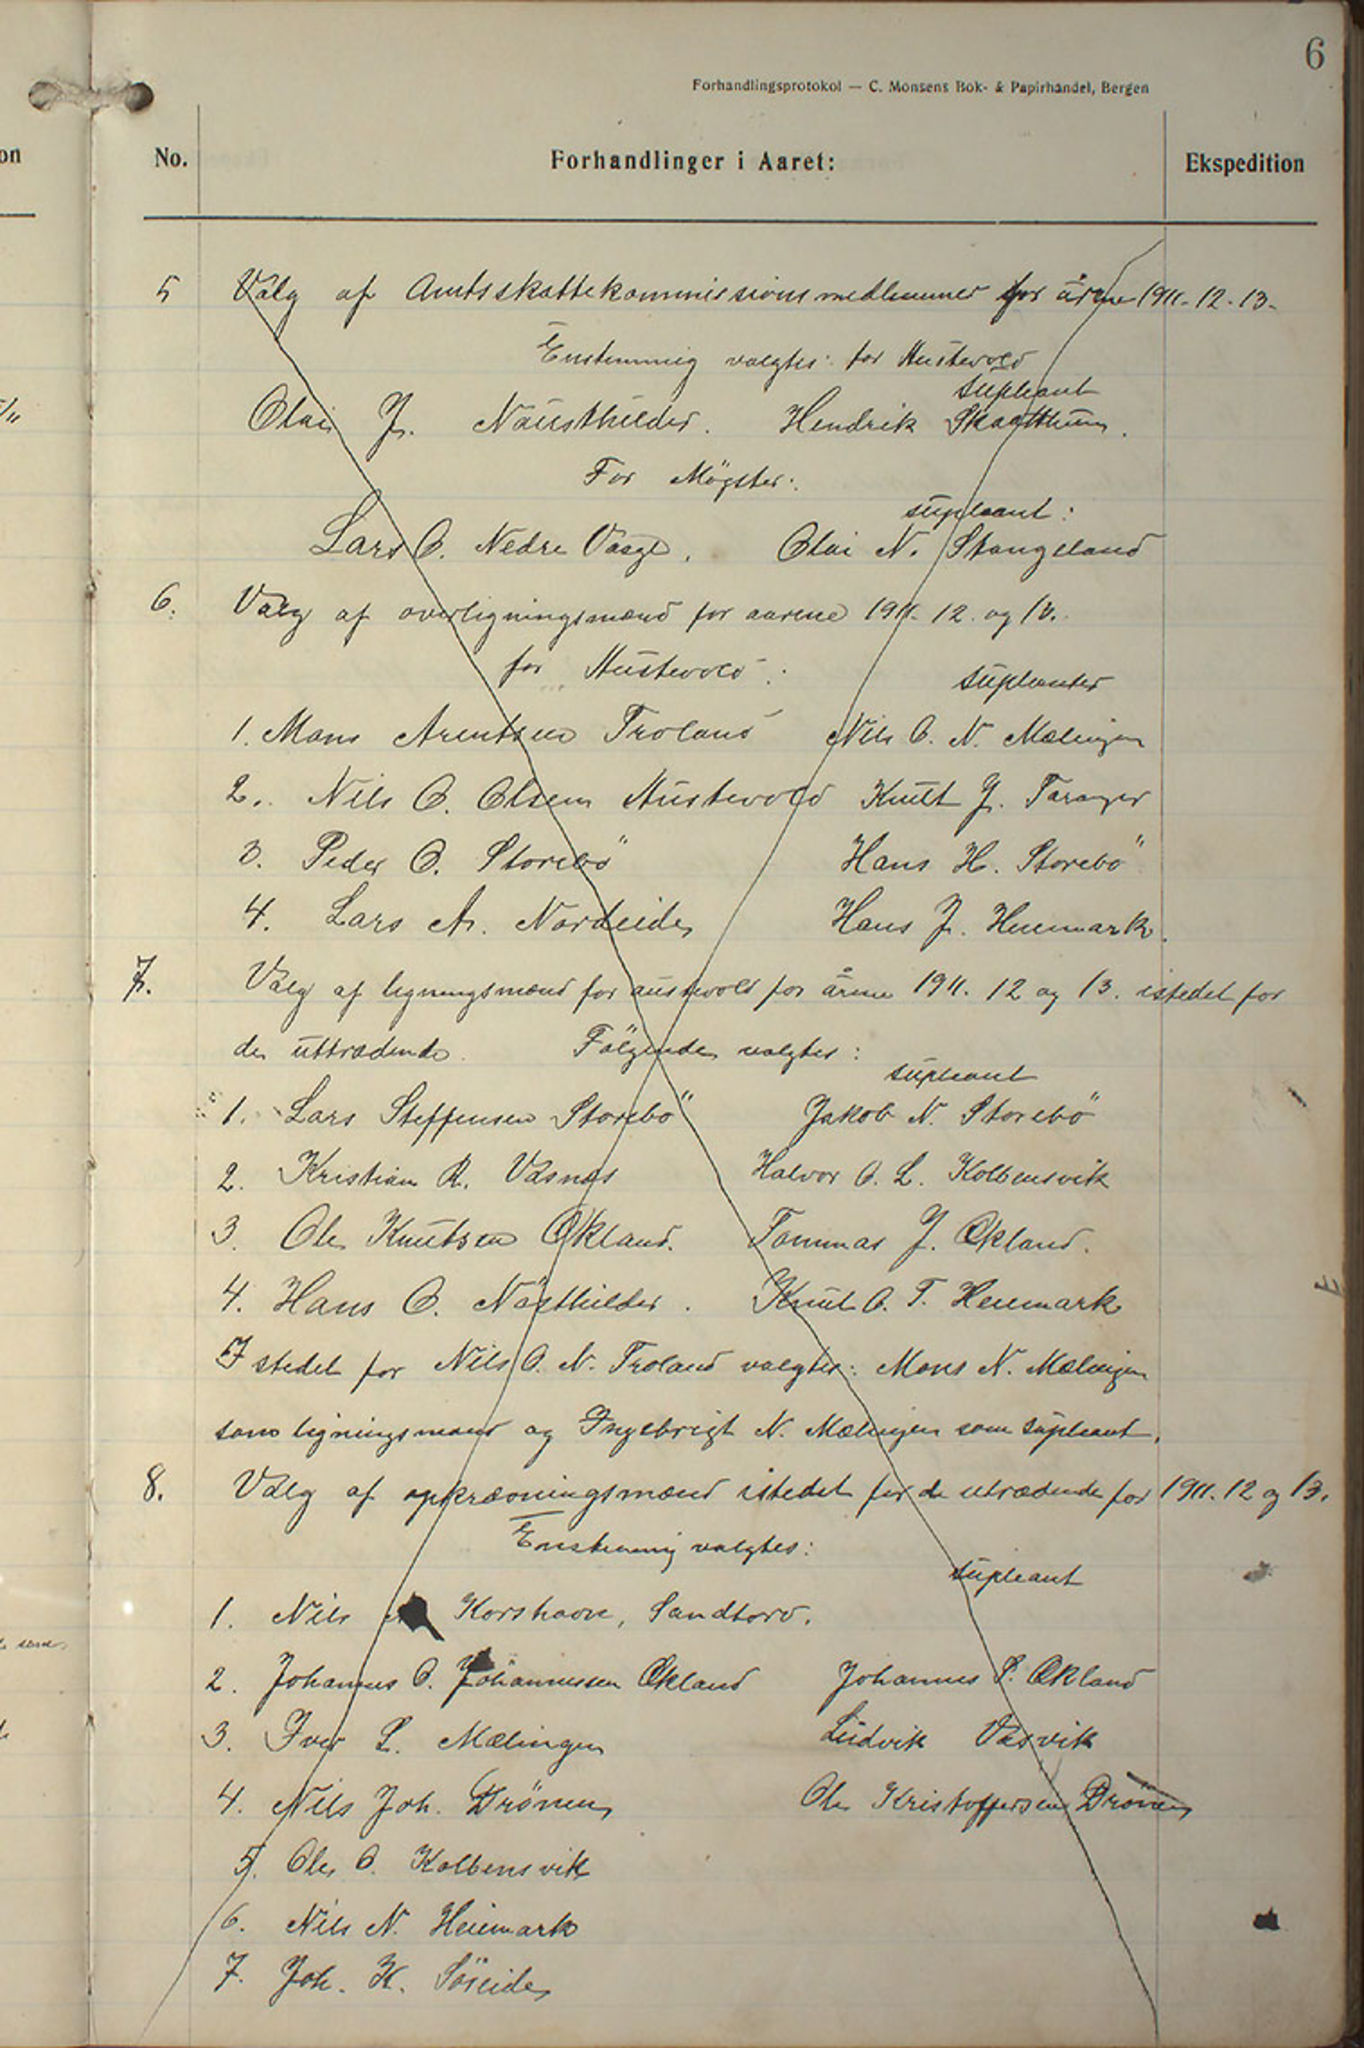 6
Forhandlingsprotokol — C. Monsens Bok- & Papirhandel, Bergen
on No. Forhandlinger i Aaret: Ekspedition
5 Valg af Amtsskattekommissionsmedlemmer for årene 1911-12-13.
Enstemmig valgtes: for Austevold
supleant
Olai J. Naustheller. Hendrik
For Møgster:
supleant:
Lars O. Nedre Vaage. Olai N. Stangeland
6. Valg af overligningsmænd for aarene 1911-12 og 13.
for Austevold: supleanter
1. Mons Arentsen Troland Nils O. N. Mælingen
2. Nils O. Olsen Austevold Knut J. Taranger
3. Peder O. Storebö Hans H. Storebö
4. Lars A. Nordeide Hans J. Heiemark.
7. Valg af ligningsmænd for austevold for årene 1911. 12 og 13. istedet for
de uttrædende. Følgende valgtes:
supleant
1. Lars Steffensen Storebö Jakob N. Storebö
2. Kristian R. Vasnes Halvor O. L. Kolbensvik
3. Ole Knutsen Økland. Tommas J. Økland.
4. Hans O. Knut O. T. Heiemark
I stedet for Nils O. N. Troland valgtes: Mons N. Mælingen
som ligningsmand og Ingebrigt N. Mælingen som supleant.
8. Valg af opkrævningsmænd istedet for de utrædende for 1911. 12 og 13.
Enstemmig valgtes:
supleant
1. Nils Korshavn, Sandtorv.
2. Johannes O. Johannessen Økland Johannes P. Økland
3. Iver L. Mælingen Ludvik Vasvik
4. Nils Joh. Drönen Ole Kristoffersen Drönen
5. Ole O. Kolbensvik
6. Nils N. Heiemark
7. Joh. K. Söreide